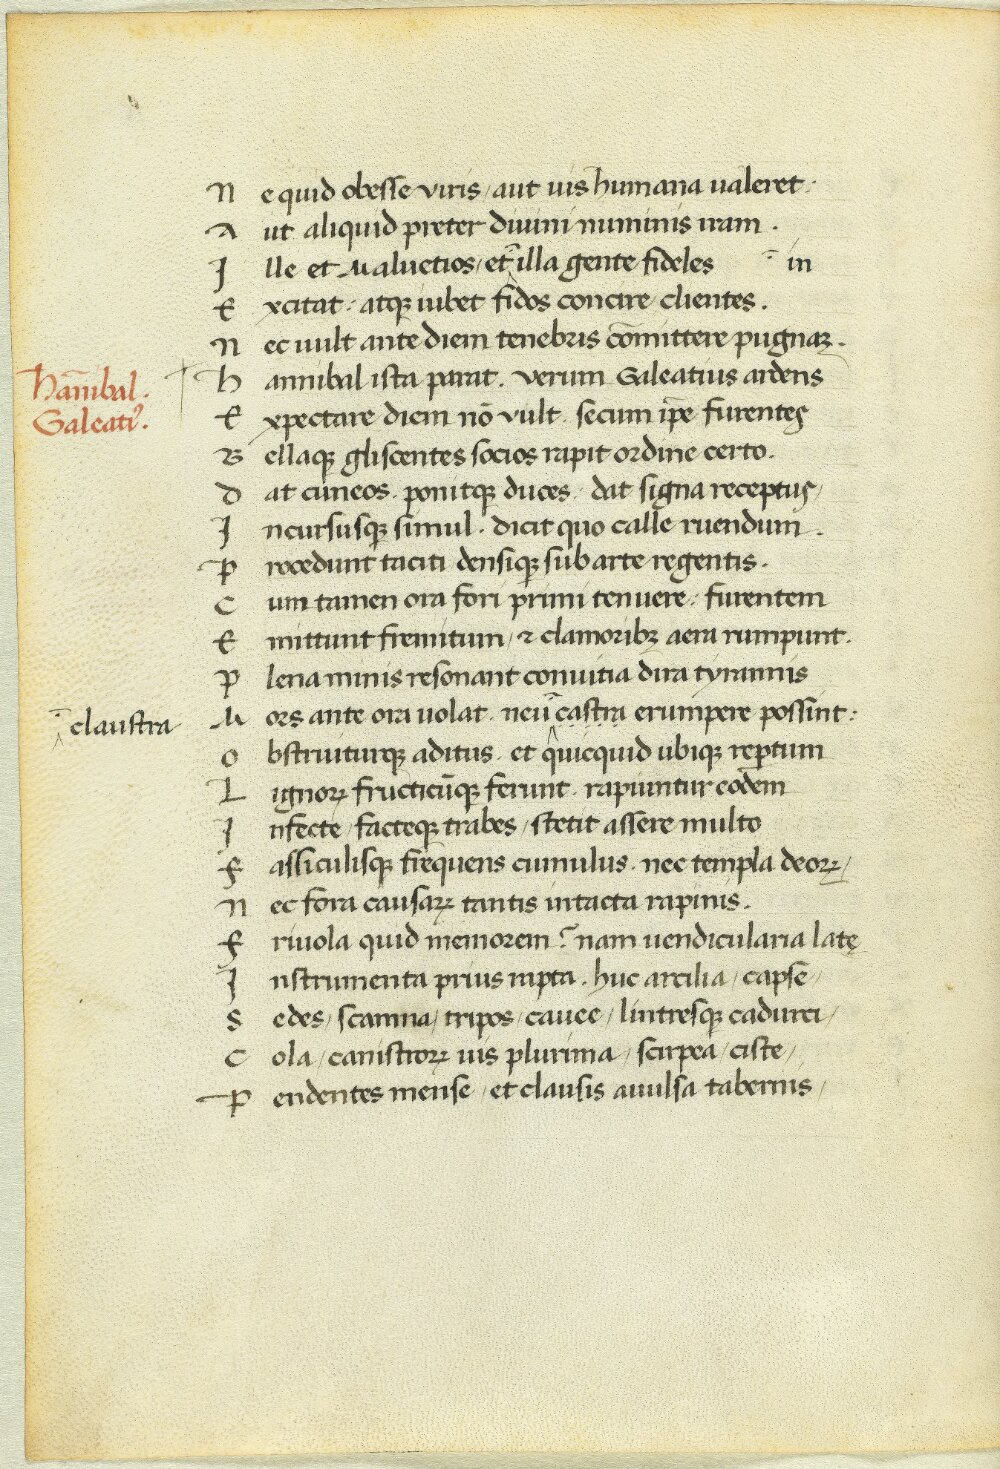 Ne quid obesse viris / aut uis humana ualeret.
Aut aliquid preter diuini numinis iram.
Ille et Maluetios / et illa gente fideles in
Excitat. atqꝫ iubet fidos concire clientes.
Nec uult ante diem tenebris cōmittere pugnaꝫ.
Hānibal.
Hannibal ista parat. verum Galeatius ardens
Galeatiꝰ.
Expectare diem nō vult. secum ip̄e furentes
Bellaqꝫ gliscentes socios rapit ordine certo.
Dat cuneos. ponitqꝫ duces. dat signa receptus /
Incursusqꝫ simul. dicit quo calle ruendum.
Procedunt taciti densiqꝫ sub arte regentis.
Cum tamen ora fori primi tenuere. furentem
Emittunt fremitum / ⁊ clamoribꝫ aera rumpunt.
Plena minis resonant conuitia dira tyrannis
claustra
Mors ante ora uolat. neu castra erumpere possint:
Obstruiturqꝫ aditus. et quicquid ubiqꝫ reꝑtum
Lignoꝝ fructicūqꝫ ferunt. rapiuntur eodem
Infecte / facteqꝫ trabes / stetit assere multo
Fassiculisqꝫ frequens cumulus. nec templa deoꝝ /
Nec fora causaꝝ tantis intacta rapinis.
Friuola quid memorem? nam uendicularia latę
Instrumenta prius rapta. huc arcilia / capse /
Sedes / scamna / tripos / cauee / lintresqꝫ cadurci /
Cola / canistroꝝ uis plurima / scirpea / ciste /
Pendentes mense / et clausis auulsa tabernis /